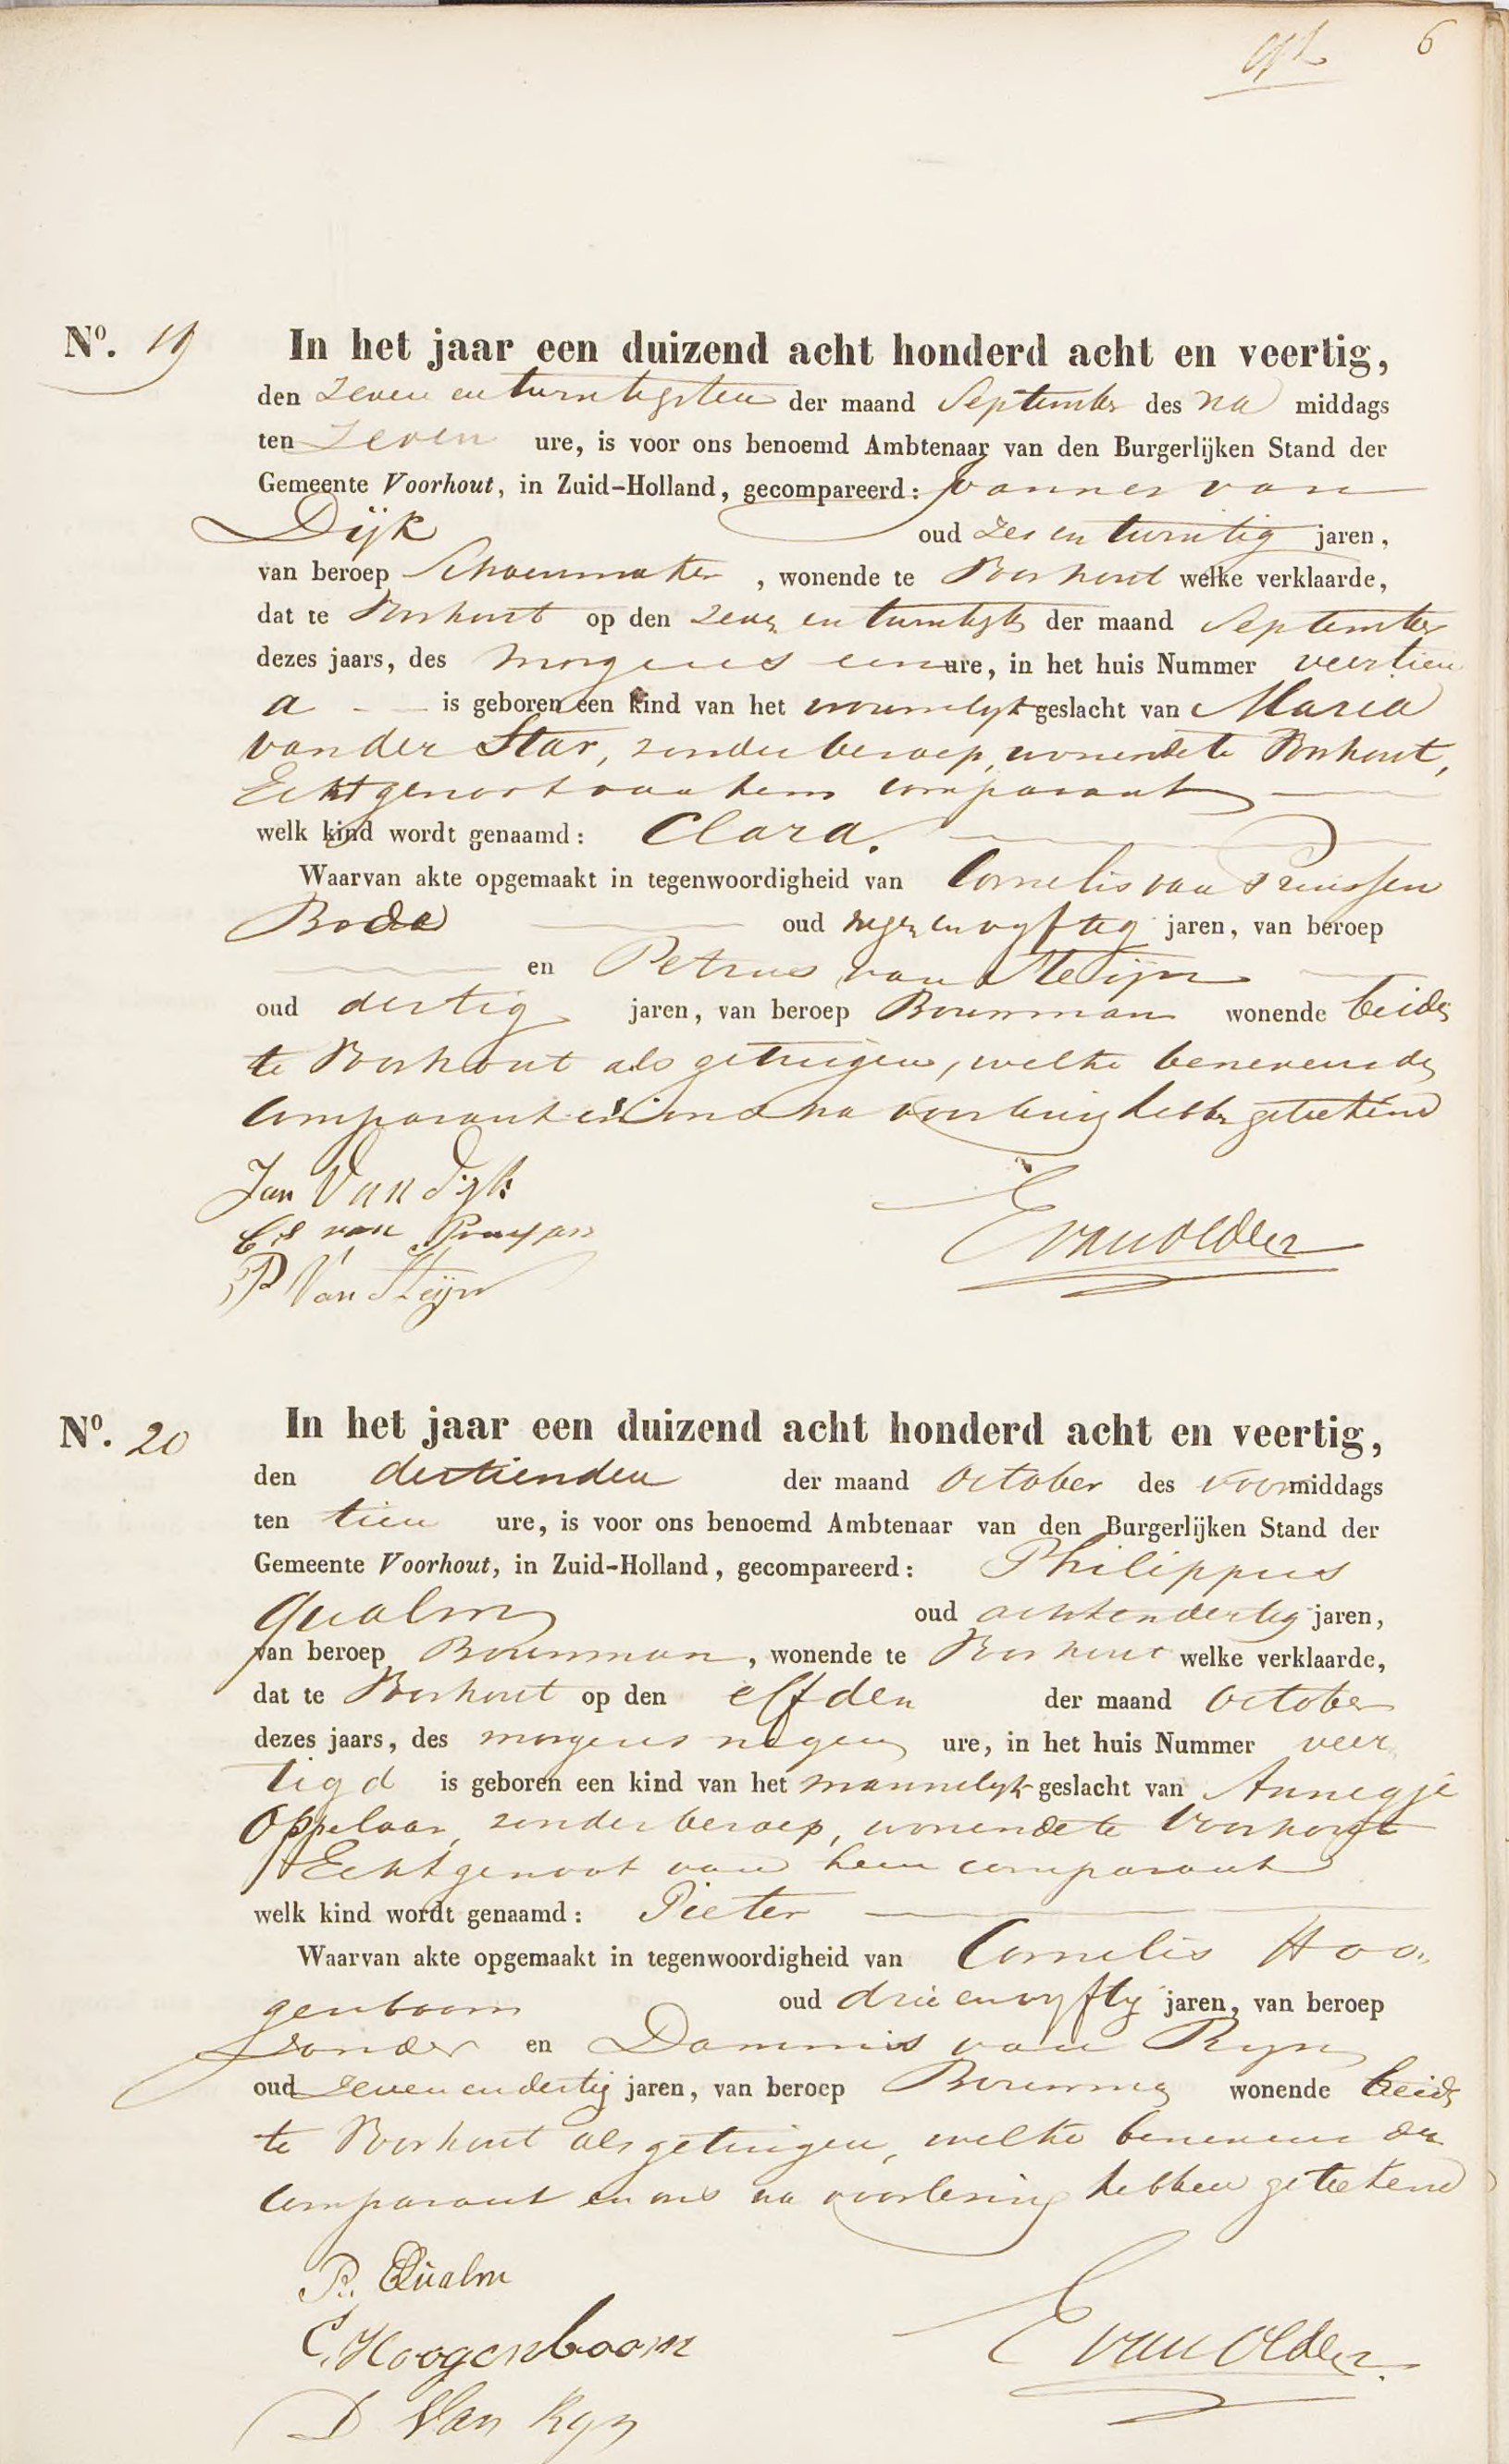 6
No. 19
In het jaar een duizend acht honderd acht en veertig,
den zeven en twintigsten der maand September des na middags
ten zeven ure, is voor ons benoemd Ambtenaar van den Burgerlijken Stand der
Gemeente Voorhout, in Zuid-Holland, gecompareerd: Joannes van
Dijk oud zes en twintig jaren,
van beroep Schoenmaker, wonende te Voorhout welke verklaarde,
dat te Voorhout op den zeven en twintigste der maand September
dezes jaars, des morgens een ure, in het huis Nummer veertien
a is geboren een kind van het vrouwelijk geslacht van Maria
van der Star, zonder beroep, wonende te Voorhout,
Echtgenoot van hem comparant
welk kind wordt genaamd: Clara.
Waarvan akte opgemaakt in tegenwoordigheid van Cornelis van Pruissen
Bode oud negen en vyftig jaren, van beroep
en Petrus van Steijn
oud dertig jaren, van beroep Bouwman wonende beide
te Voorhout als getuigen, welke benevens de
Comparant en ons na voorlezing hebben geteekend
Jan Van Dijk
Cs van Pruissen
P Van Steijn
E van Olden
No. 20
In het jaar een duizend acht honderd acht en veertig,
den dertienden der maand October des voormiddags
ten tien ure, is voor ons benoemd Ambtenaar van den Burgerlijken Stand der
Gemeente Voorhout, in Zuid-Holland, gecompareerd: Philippus
Qualm oud acht en dertig jaren,
van beroep Bouwman, wonende te Voorhout welke verklaarde,
dat te Voorhout op den elfden der maand October
dezes jaars, des morgens negen ure, in het huis Nummer veer
tig d is geboren een kind van het mannelijk geslacht van Annegje
Oppelaar, zonder beroep, wonende te Voorhout
Echtgenoot van hem comparant
welk kind wordt genaamd: Pieter
Waarvan akte opgemaakt in tegenwoordigheid van Cornelis Hoo
genboom oud drie en vyftig jaren, van beroep
zonder en Dammis van Ryn
oud zeven en dertig jaren, van beroep Bouwman wonende beide
te Voorhout als getuigen, welke benevens den
Comparant en ons na voorlezing hebben geteekend
P. Qualm
C. Hoogenboom
D Van Ryn
E van Olden